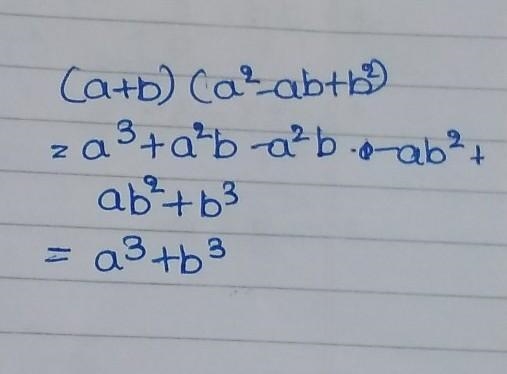 (a+b) (a²-ab+b²)
= a³+a²b-a²b-ab²+
ab²+b³
= a³+b³